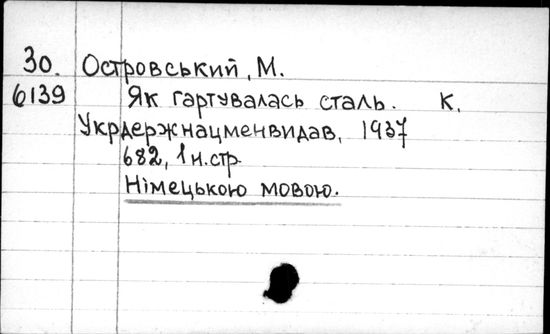 30. Островський, М.
6139 Як гартувалась сталь. К.
Укрдержнацменвидав, 1937
682, 1 н.стр.
Німецькою мовою.